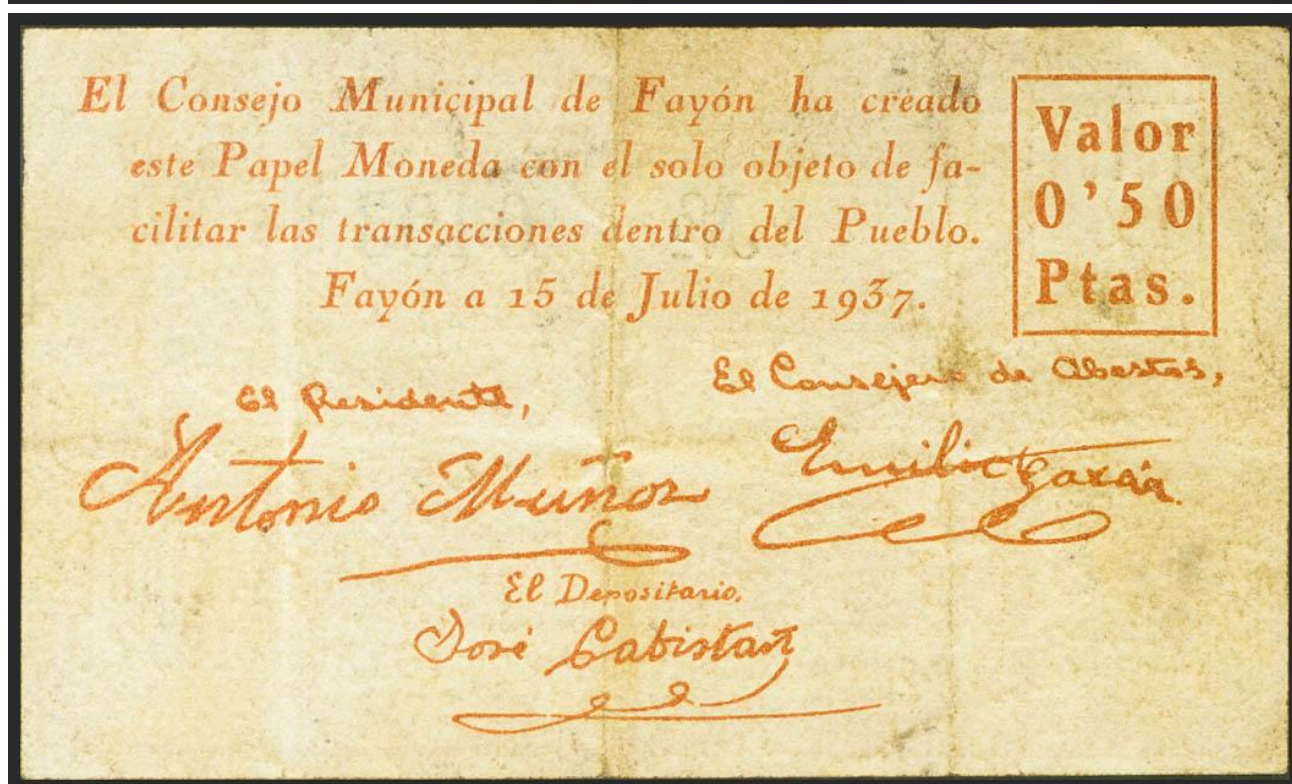 El Consejo Municipal de Fayón ha creado
este Papel Moneda con el solo objeto de fa-
cilitar las transacciones dentro del Pueblo.
Fayón a 15 de Julio de 1937.
Valor
0'50
Ptas.
El Presidente,
El Consejero de Abastos,
Antonio Muñoz
Emilio
El Depositario.
José Cabistart